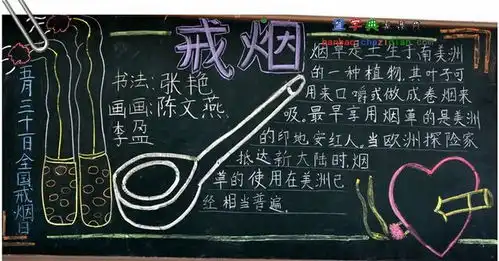 五月三十一日全国戒烟日
戒烟
书法:张艳
画画:陈文燕
李盈
烟草是二生于南美洲
的一种植物.其叶子可
用来口嚼或做成卷烟来
吸。最早享用烟草的是美洲
的印地安红人。当欧洲探险家
抵达新大陆时,烟
草的使用在美洲已
经相当普遍。